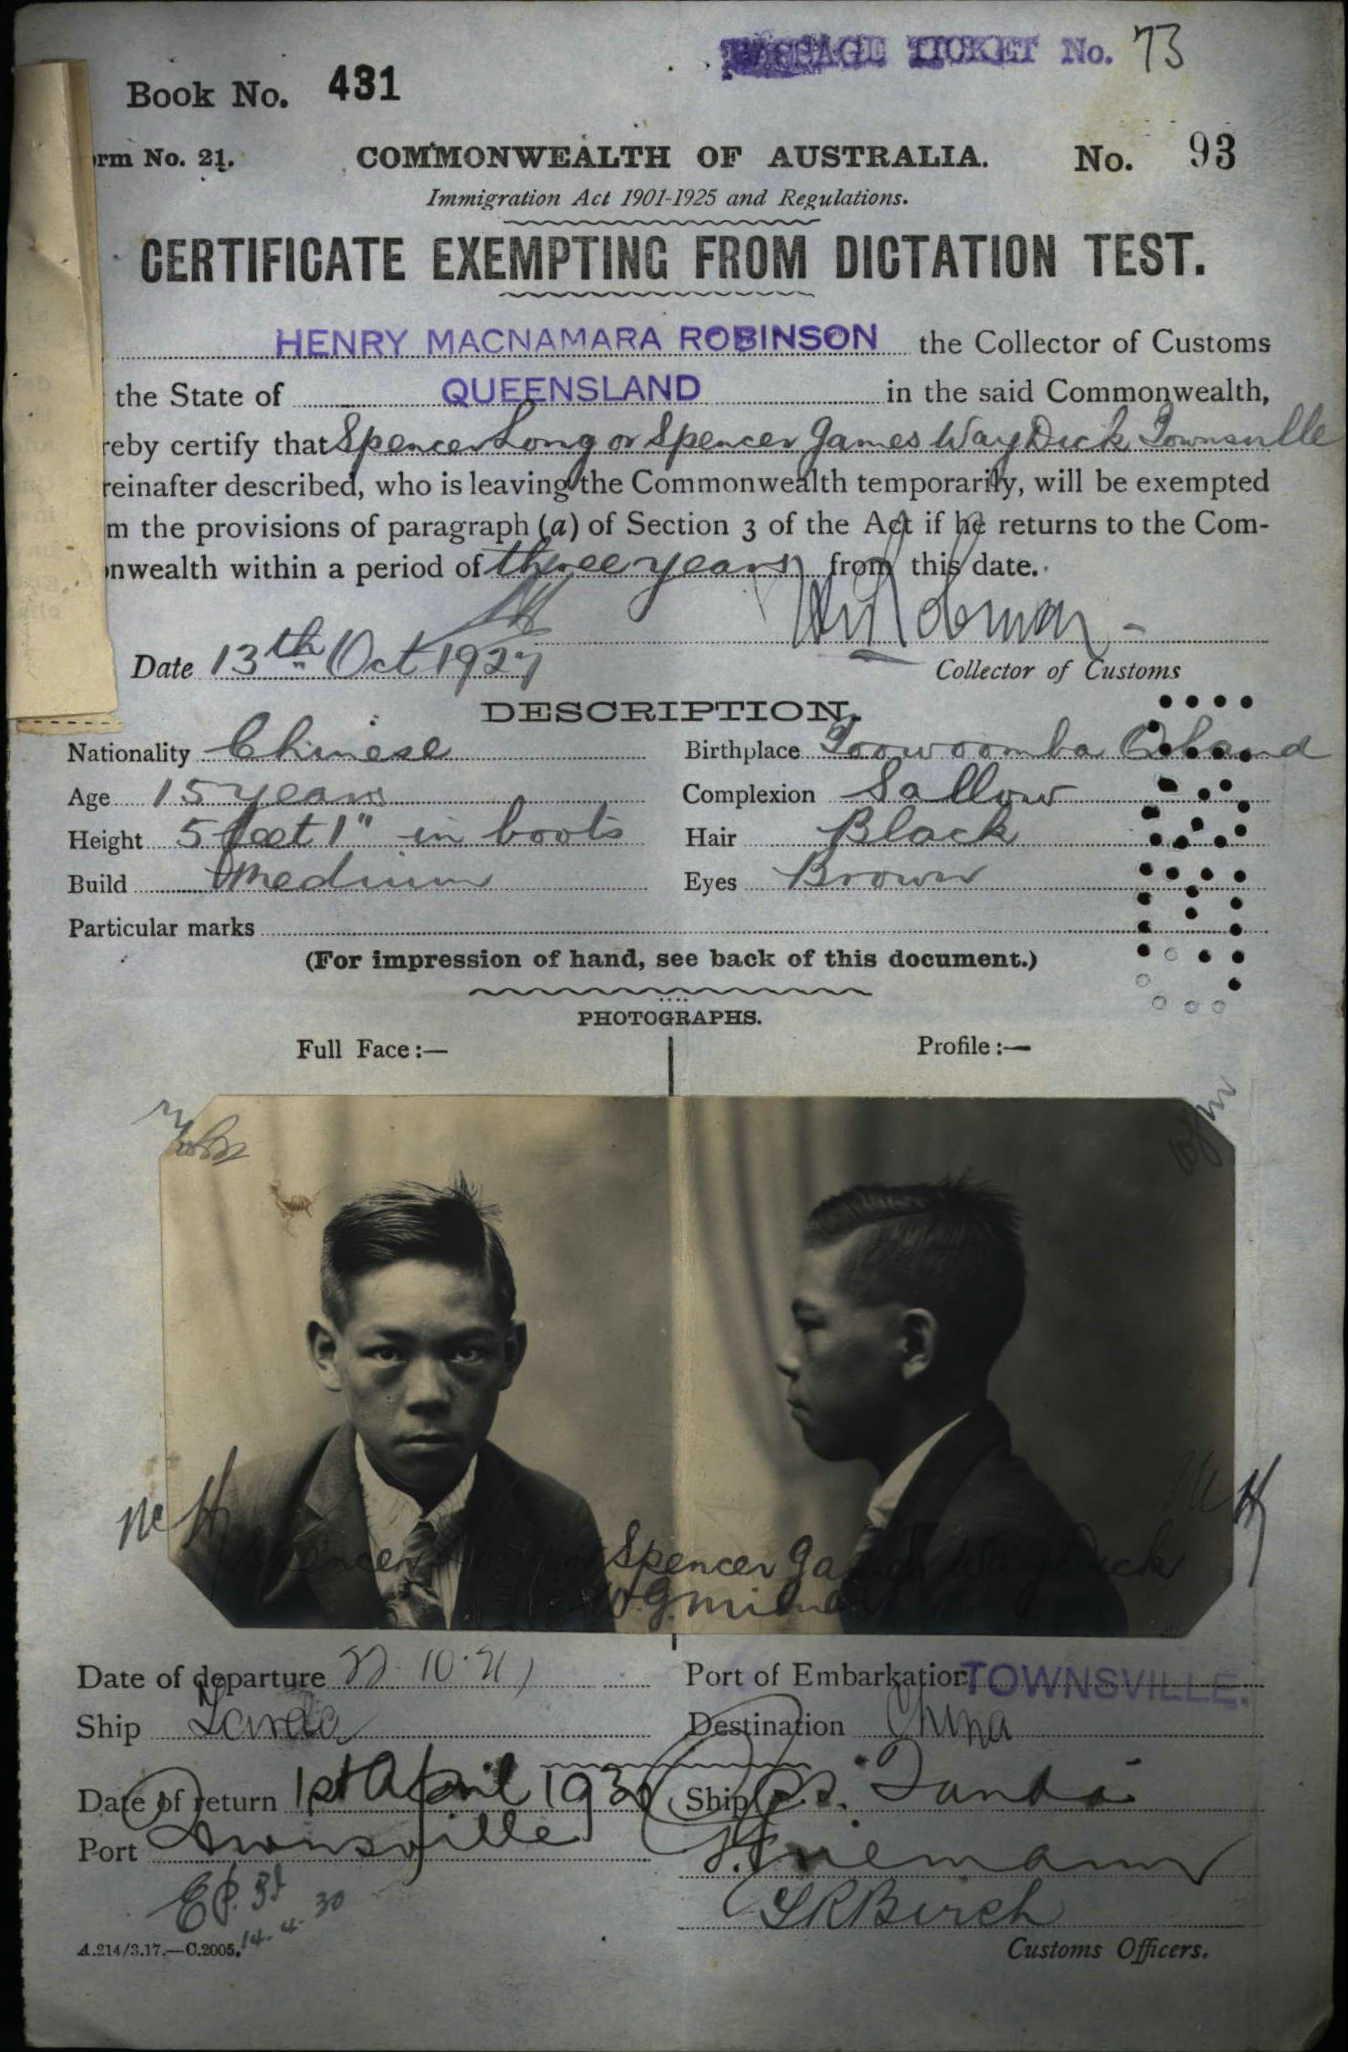 PASSAGE TICKET No. 73
Book No. 431
orm No. 21. COMMONWEALTH OF AUSTRALIA. No. 93
Immigration Act 1901-1925 and Regulations.
CERTIFICATE EXEMPTING FROM DICTATION TEST.
HENRY MACNAMARA ROBINSON the Collector of Customs
the State of QUEENSLAND in the said Commonwealth,
reby certify that Spencer Long or Spencer James Way Dick Townsville
reinafter described, who is leaving the Commonwealth temporarily, will be exempted
m the provisions of paragraph (a) of Section 3 of the Act if he returns to the Com-
onwealth within a period of three years from this date.
Date 13th Oct 1927
Collector of Customs
DESCRIPTION.
Nationality Chinese Birthplace Toowoomba Qland
Age 15 years Complexion Sallow
Height 5 feet 1" in boots Hair Black
Build Medium Eyes Brown
Particular marks
(For impression of hand, see back of this document.)
PHOTOGRAPHS.
Full Face:— Profile:—
Spencer Spencer James Way Dick
Date of departure Port of Embarkation TOWNSVILLE.
Ship Tanda Destination China
Date of return 1st April 1930 Ship S.S. Tanda
Port Townsville
14.4.30
L R Birch
A.214/3.17.—C.2005. Customs Officers.